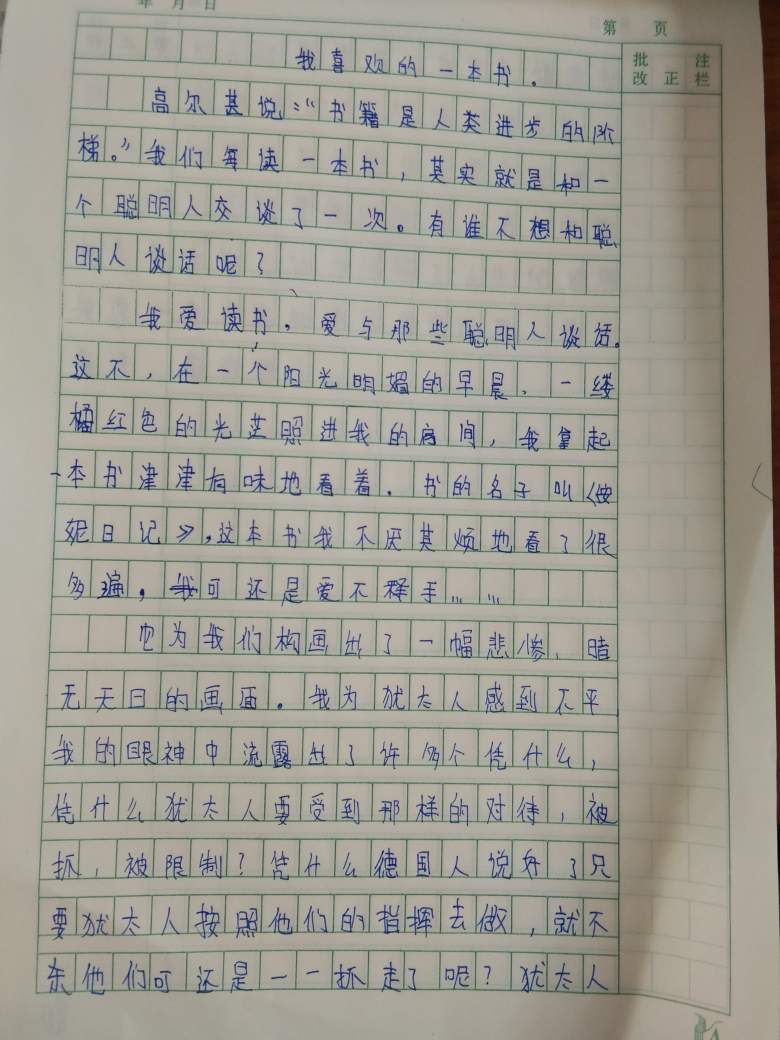 年 月 日
第 页
批 注
改 正 栏
我喜欢的一本书。
高尔基说:“书籍是人类进步的阶
梯。”我们每读一本书,其实就是和一
个聪明人交谈了一次。有谁不想和聪
明人谈话呢?
我爱读书,爱与那些聪明人谈话。
这不,在一个阳光明媚的早晨、一缕
橘红色的光芒照进我的房间,我拿起
一本书津津有味地看着.书的名子叫《安
妮日记》,这本书我不厌其烦地看了很
多遍,可还是爱不释手……
它为我们构画出了一幅悲惨、暗
无天日的画面。我为犹太人感到不平
我的眼神中流露出了许多个凭什么,
凭什么犹太人要受到那样的对待,被
抓,被限制?凭什么德国人说好了只
要犹太人按照他们的指挥去做,就不
杀他们可还是一一抓走了呢?犹太人